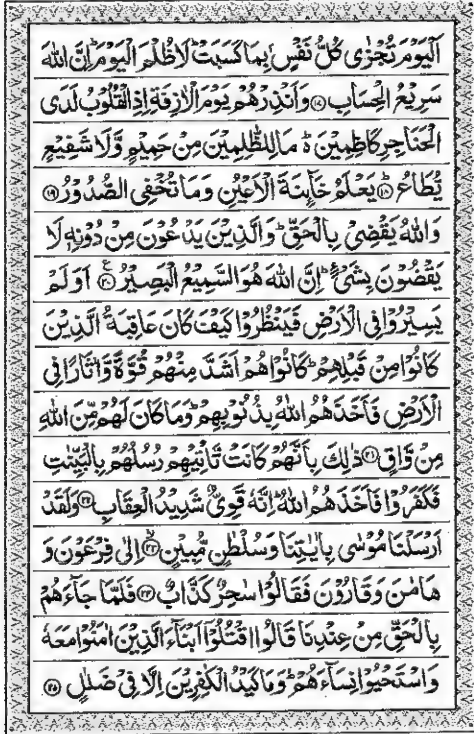 اَلْيَوْمَ تُجْزٰى كُلُّ نَفْسٍ بِمَا كَسَبَتْ ؕ لَا ظُلْمَ الْيَوْمَ ؕ اِنَّ اللّٰهَ
سَرِيْعُ الْحِسَابِ ۝۱۷ وَاَنْذِرْهُمْ يَوْمَ الْاٰزِفَةِ اِذِ الْقُلُوْبُ لَدَى
الْحَنَاجِرِ كَاظِمِيْنَ ۬ؕ مَا لِلظّٰلِمِيْنَ مِنْ حَمِيْمٍ وَّلَا شَفِيْعٍ
يُّطَاعُ ؕ۝۱۸ يَعْلَمُ خَآئِنَةَ الْاَعْيُنِ وَمَا تُخْفِى الصُّدُوْرُ ۝۱۹
وَاللّٰهُ يَقْضِىْ بِالْحَقِّ ؕ وَالَّذِيْنَ يَدْعُوْنَ مِنْ دُوْنِهٖ لَا
يَقْضُوْنَ بِشَىْءٍ ؕ اِنَّ اللّٰهَ هُوَ السَّمِيْعُ الْبَصِيْرُ ۝۲۰ع اَوَلَمْ
يَسِيْرُوْا فِى الْاَرْضِ فَيَنْظُرُوْا كَيْفَ كَانَ عَاقِبَةُ الَّذِيْنَ
كَانُوْا مِنْ قَبْلِهِمْ ؕ كَانُوْا هُمْ اَشَدَّ مِنْهُمْ قُوَّةً وَّاٰثَارًا فِى
الْاَرْضِ فَاَخَذَهُمُ اللّٰهُ بِذُنُوْبِهِمْ ؕ وَمَا كَانَ لَهُمْ مِّنَ اللّٰهِ
مِنْ وَّاقٍ ۝۲۱ ذٰلِكَ بِاَنَّهُمْ كَانَتْ تَّاْتِيْهِمْ رُسُلُهُمْ بِالْبَيِّنٰتِ
فَكَفَرُوْا فَاَخَذَهُمُ اللّٰهُ ؕ اِنَّهٗ قَوِىٌّ شَدِيْدُ الْعِقَابِ ۝۲۲ وَلَقَدْ
اَرْسَلْنَا مُوْسٰى بِاٰيٰتِنَا وَسُلْطٰنٍ مُّبِيْنٍ ۙ۝۲۳ اِلٰى فِرْعَوْنَ وَ
هَامٰنَ وَقَارُوْنَ فَقَالُوْا سٰحِرٌ كَذَّابٌ ۝۲۴ فَلَمَّا جَآءَهُمْ
بِالْحَقِّ مِنْ عِنْدِنَا قَالُوا اقْتُلُوْۤا اَبْنَآءَ الَّذِيْنَ اٰمَنُوْا مَعَهٗ
وَاسْتَحْيُوْا نِسَآءَهُمْ ؕ وَمَا كَيْدُ الْكٰفِرِيْنَ اِلَّا فِىْ ضَلٰلٍ ۝۲۵